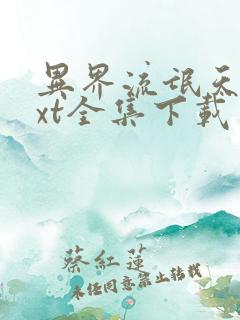 異界流氓天
xt全集下載
蔡紅蓮
未經同意禁止轉載